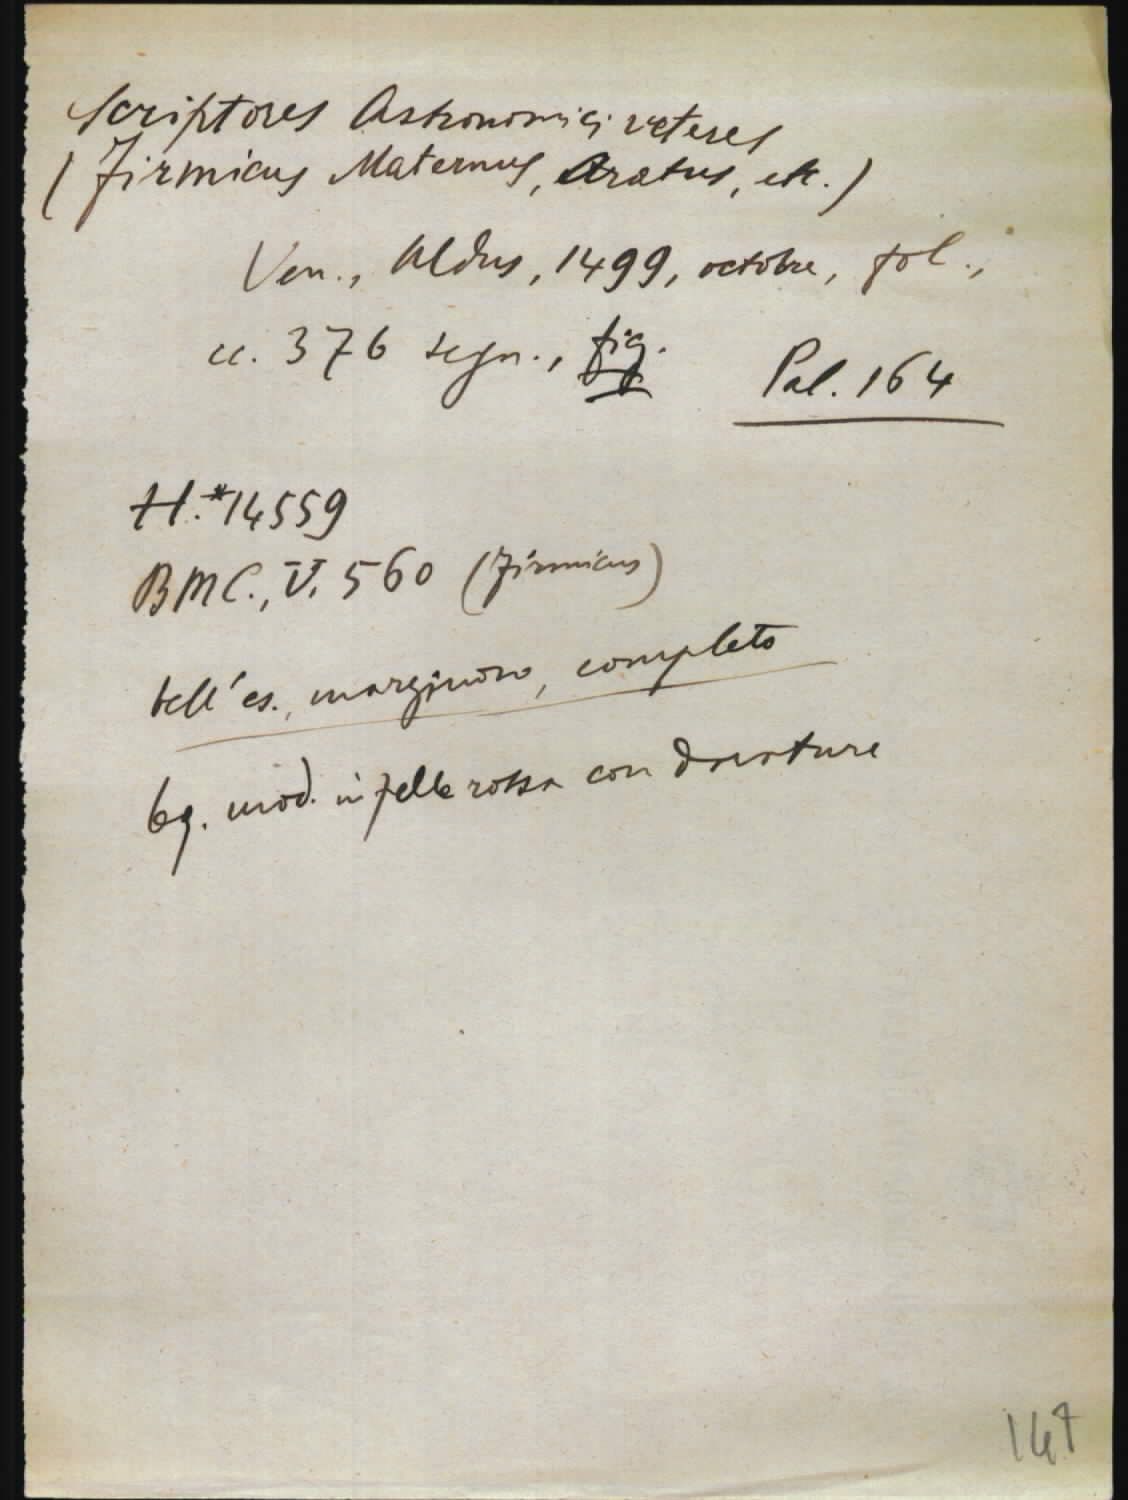 Scriptores Astronomici veteres
(Firmicus Maternus, Aratus, etc.)
Ven., Aldus, 1499, octobre, fol.,
cc. 376 segn., fig.
Pal. 164
H.*14559
BMC., V. 560 (Firmicus)
bell'es., marginoso, completo
leg. mod. in pelle rossa con dorature
147